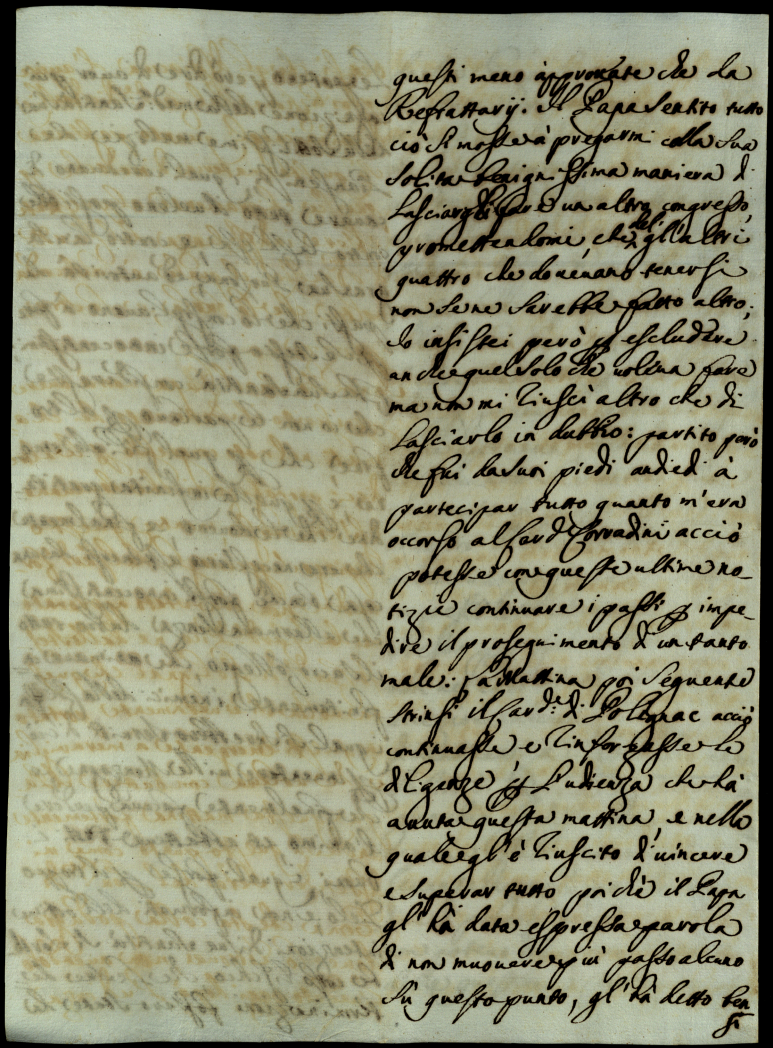 questi meno approvate che da
Refrattarij. Il Papa sentito tutto
ciò si mosse à pregarmi colla sua
solita benignissima maniera di
lasciargli fare un altro congresso,
promettendomi, che del gl'altri
quattro che doveuano tenersi
non se ne sarebbe fatto altro;
Io insistei però p escludere
anche quel solo che uoleua fare
ma non mi riuscì altro che di
lasciarlo in dubbio: partito però
che fui da suoi piedi andiedi à
partecipar tutto quanto m'era
occorso al Card.l Corradini acciò
potesse con queste ultime no-
tizie continuare i passi p impe-
dire il proseguimento di un tanto
male: La Mattina poi seguente
strinsi il Card.e di Polignac acciò
continuasse e rinforzasse le
diligenze p l'udienza che hà
auuta questa mattina, e nella
quale egl'è riuscito di uincere
e superar tutto poiche il Papa
gl'hà data espressa parola
di non muouere più passo alcuno
sù questo punto, gl'hà detto ben
si